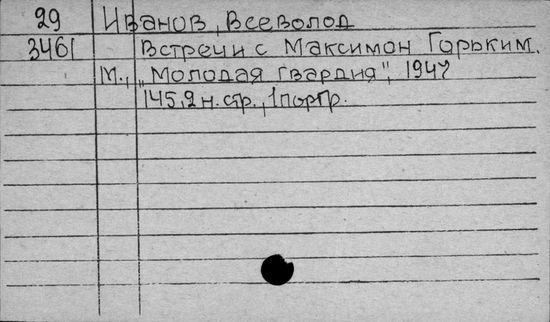 29 Иванов, Всеволод
3461 Встречи с Максимом Горьким.
М., „Молодая гвардия", 1947
145,2 н. стр., 1 портр.